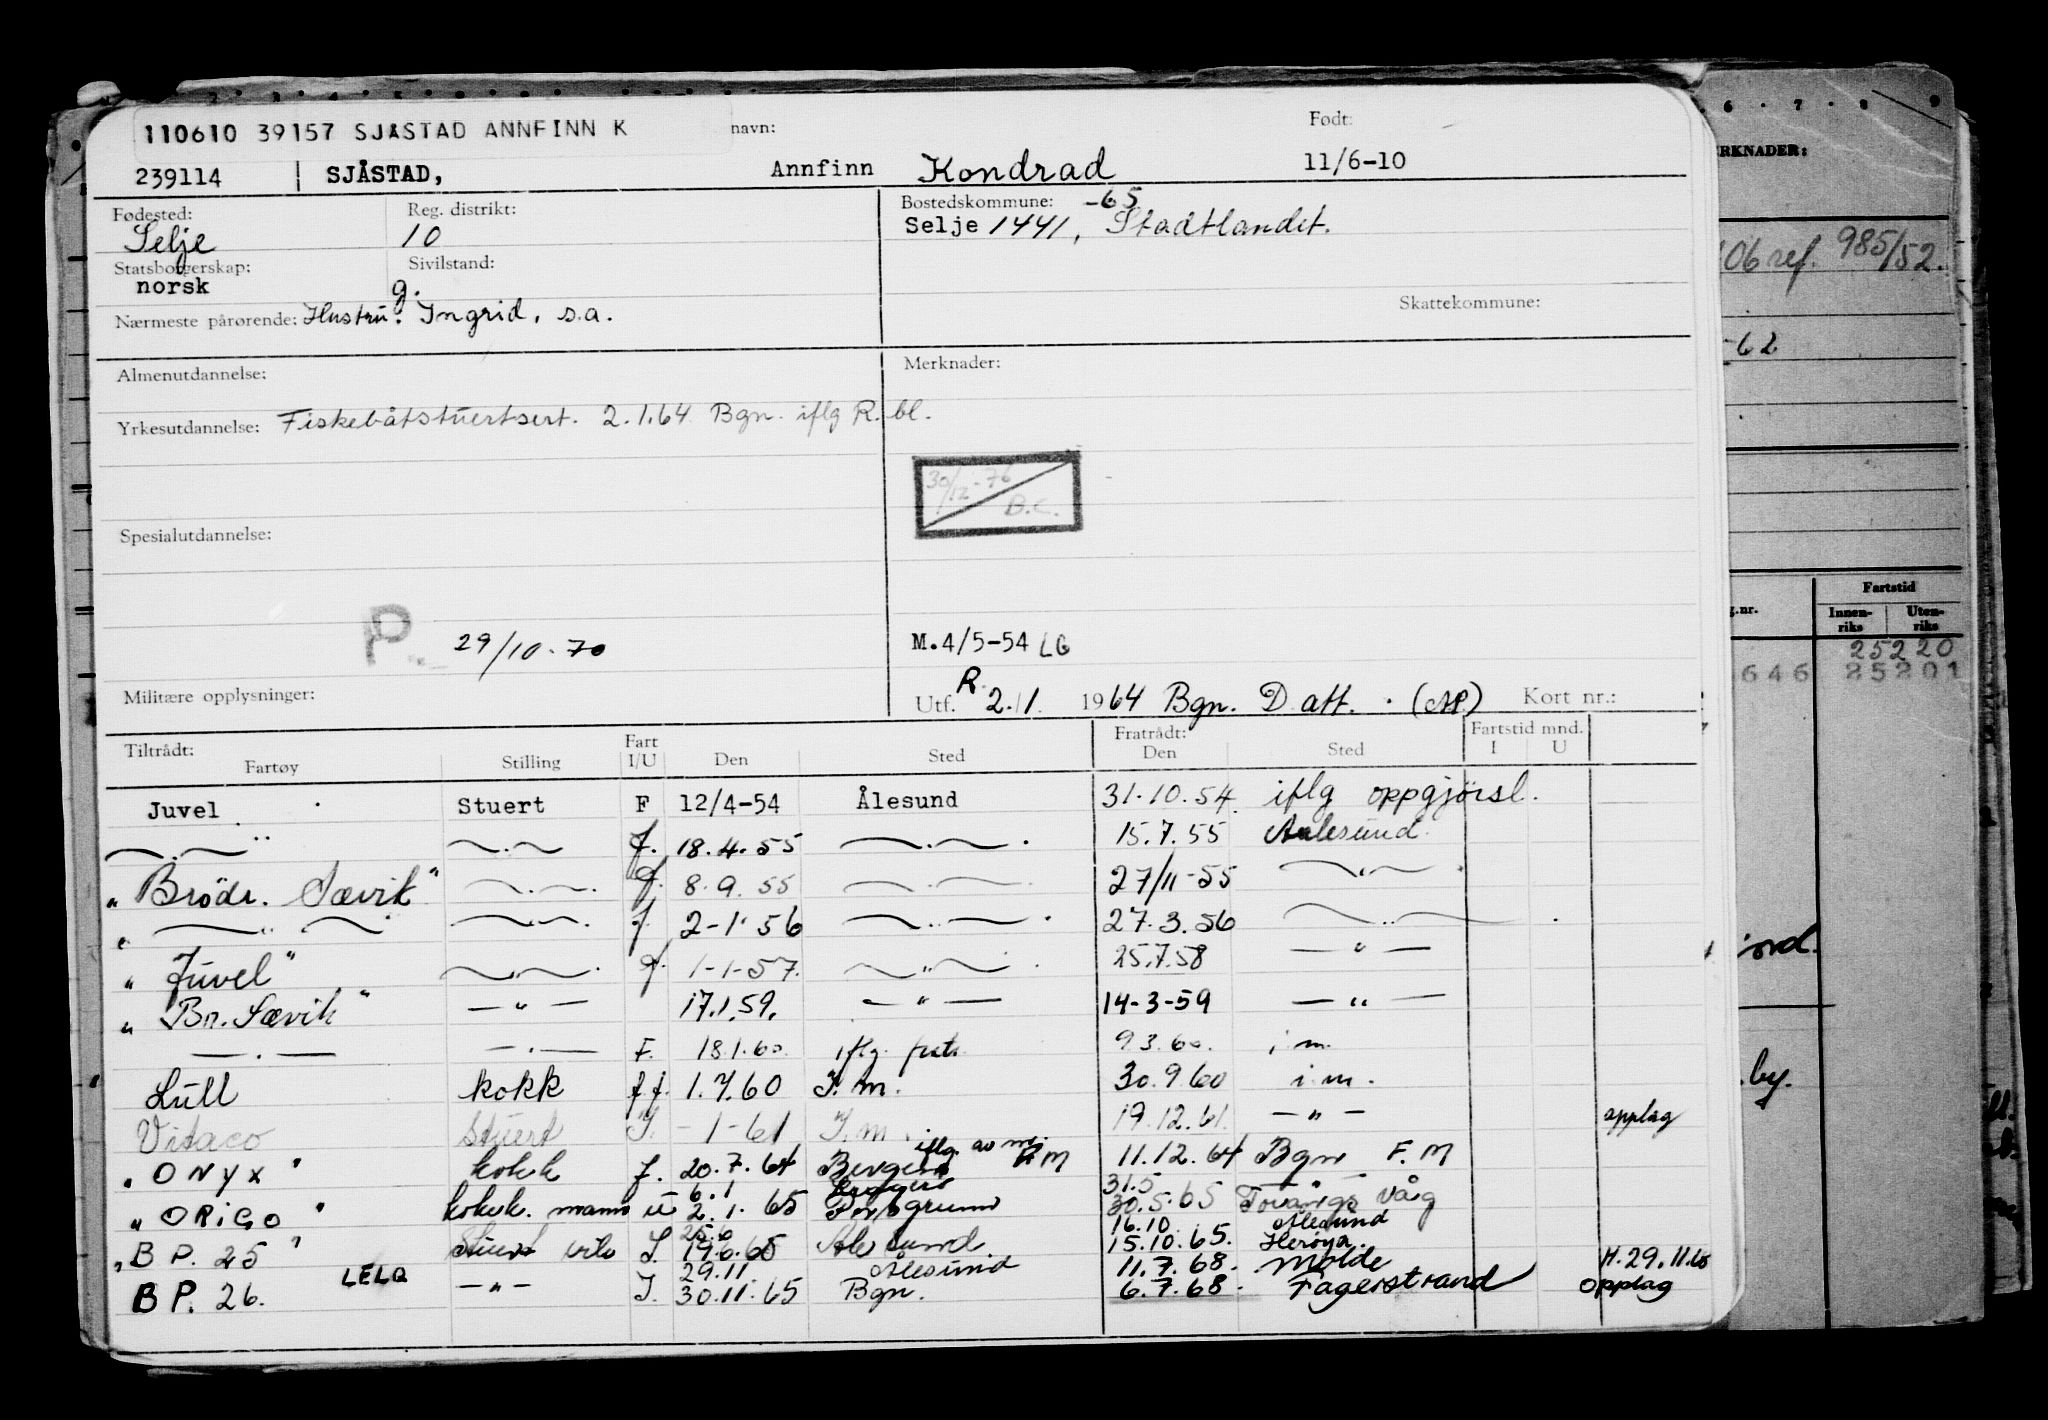 110610 39157 SJÅSTAD ANNFINN K navn: Født:
239114 SJÅSTAD, Annfinn Kondrad 11/6-10
Fødested: Reg. distrikt: Bostedskommune: -65
Selje 10 Selje 1441, Stadtlandet.
Statsborgerskap: Sivilstand:
norsk g.
Skattekommune:
Nærmeste pårørende: Hustru: Ingrid, s.a.
Almenutdannelse: Merknader:
Yrkesutdannelse: Fiskebåtstuertsert. 2.1.64 Bgn. iflg R. bl.
30/12-76 B.C.
Spesialutdannelse:
P. 29/10-70
M.4/5-54 LG
Militære opplysninger: Utf. R. 2./1. 1964 Bgn. D att. (M) Kort nr.:
Tiltrådt: Fart Fratrådt: Fartstid mnd.
Fartøy Stilling I/U Den Sted Den Sted I U
Juvel Stuert F 12/4-54 Ålesund 31.10.54. iflg oppgjörsl.
—.—" —.— f. 18.4.55 —.— . 15.7.55 Aalesund.
" Brödr. Sævik" —.—. f. 8.9.55 —.— 27/11-55 —"—
" —"— —"— f. 2-1-56 —"— . 27.3.56 —"— .
" Juvel" —"—. f. 1-1-57. —"— . 25.7.58 — " —
" Br. Sævik" — " — 17.1.59. — " — 14-3-59 — " —
—.— —.— F. 18.1.60. iflg. frats. 9.3.60. i.m.
Lull kokk ff. 1.7.60 I.m. 30.9.60 i.m.
Vitaco Stuert I. -1-61 I.m. 19.12.61. — " — opplag
iflg. av m.
" ONYX " kokk f. 20.7.64 Bergen F.M 11.12.64 Bgn F.M
6.1 31.5 — " —
" ORIGO " kokk. mann u 2.1.65 Porsgrunn 30.5.65 Våg
25.6 16.10 Ålesund
" B P. 25 " Stuert I. 19.6.65 Ålesund 15.10.65. Herøya.
LELQ 29.11 Ålesund 11.7.68. Molde H.29.11.65
B P. 26. — " — I. 30.11.65 Bgn. 6.7.68. Fagerstrand opplag
6 7 8 9
RKNADER:
106 ref. 985/52.
-62
Fartstid
g.nr. Innen-riks Uten-riks
25220
646 25201
.by.